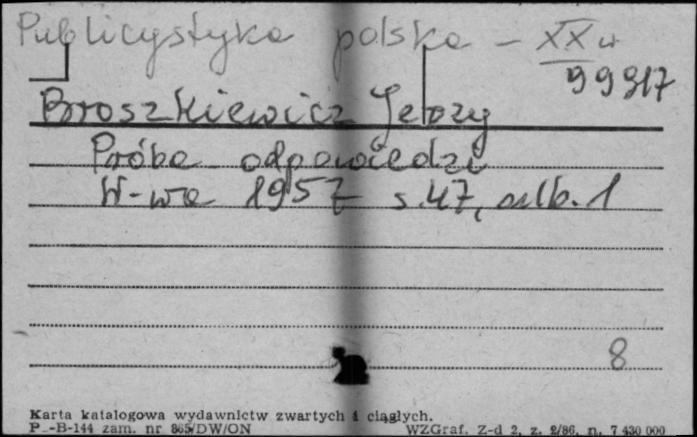 Publicystyka polska - XX w
99317
Broszkiewicz Jerzy
Próba odpowiedzi
W-wa 1957 s. 47, nlb. 1
8
Karta katalogowa wydawnictw zwartych i ciągłych.
P_-B-144 zam. nr 865/DW/ON WZGraf. Z-d 2, z. 2/86, n. 7 430 000